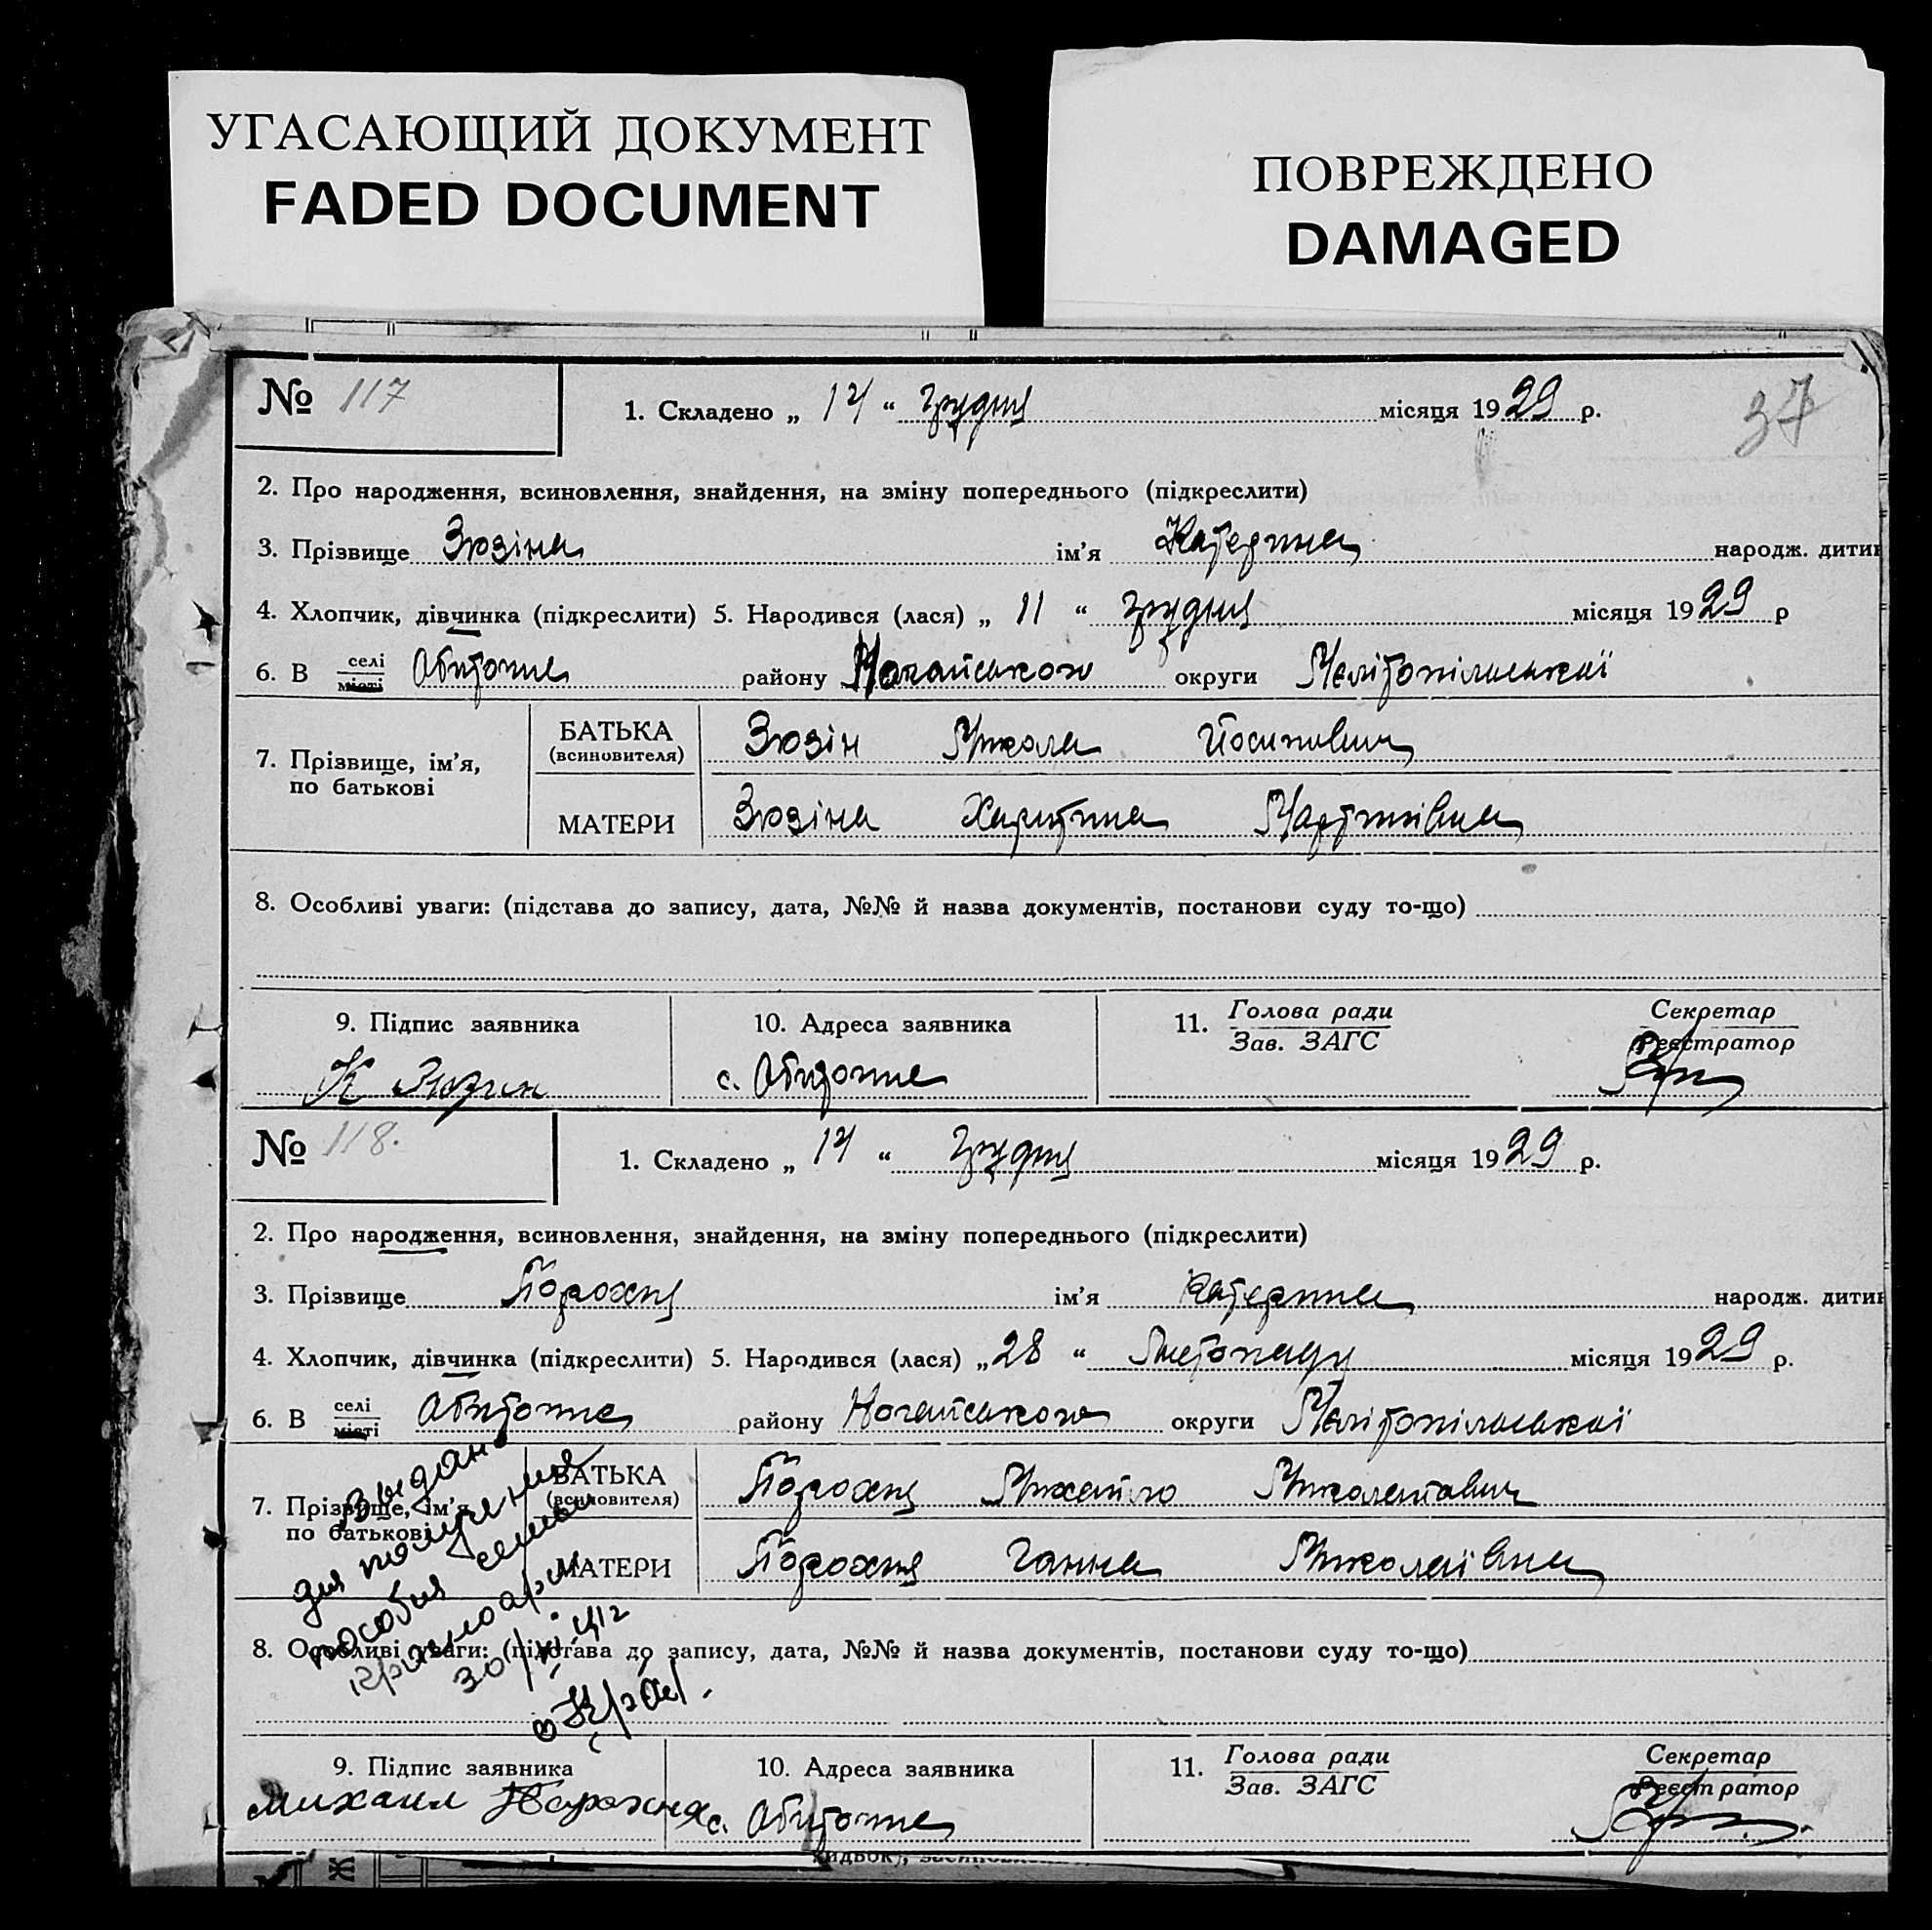 УГАСАЮЩИЙ ДОКУМЕНТ
FADED DOCUMENT
ПОВРЕЖДЕНО
DAMAGED
№ 117
1. Складено „ 14 “ грудня місяця 1929 р.
37
2. Про народження, всиновлення, знайдення, на зміну попереднього (підкреслити)
3. Прізвище Зюзіна ім’я Катерина народж. дитин
4. Хлопчик, дівчинка (підкреслити) 5. Народився (лася) „ 11 “ грудня місяця 1929 р
6. В селі місті Обиточне району Ногайського округи Мелітопільської
7. Прізвище, ім’я, по батькові
БАТЬКА (всиновителя) Зюзін Микола Йосипович
МАТЕРИ Зюзіна Харитина Мартинівна
8. Особливі уваги: (підстава до запису, дата, №№ й назва документів, постанови суду то-що)
9. Підпис заявника 10. Адреса заявника 11. Голова ради Секретар
Зав. ЗАГС Реєстратор
К Зюзин с. Обиточне
№ 118.
1. Складено „ 14 “ грудня місяця 1929 р.
2. Про народження, всиновлення, знайдення, на зміну попереднього (підкреслити)
3. Прізвище Порохня ім’я Катерина народж. дитин
4. Хлопчик, дівчинка (підкреслити) 5. Народився (лася) „ 28 “ Листопаду місяця 1929 р.
6. В селі місті Обиточне району Ногайського округи Мелітопільської
7. Прізвище, ім’я по батькові
БАТЬКА (всиновителя) Порохня Михайло Миколайович
МАТЕРИ Порохня Ганна Миколаївна
выдано
для получения
пособия семьи
красноарм.
30/XI-41г
8. Особливі уваги: (підстава до запису, дата, №№ й назва документів, постанови суду то-що)
9. Підпис заявника 10. Адреса заявника 11. Голова ради Секретар
Зав. ЗАГС Реєстратор
Михаил Порохня с. Обиточне